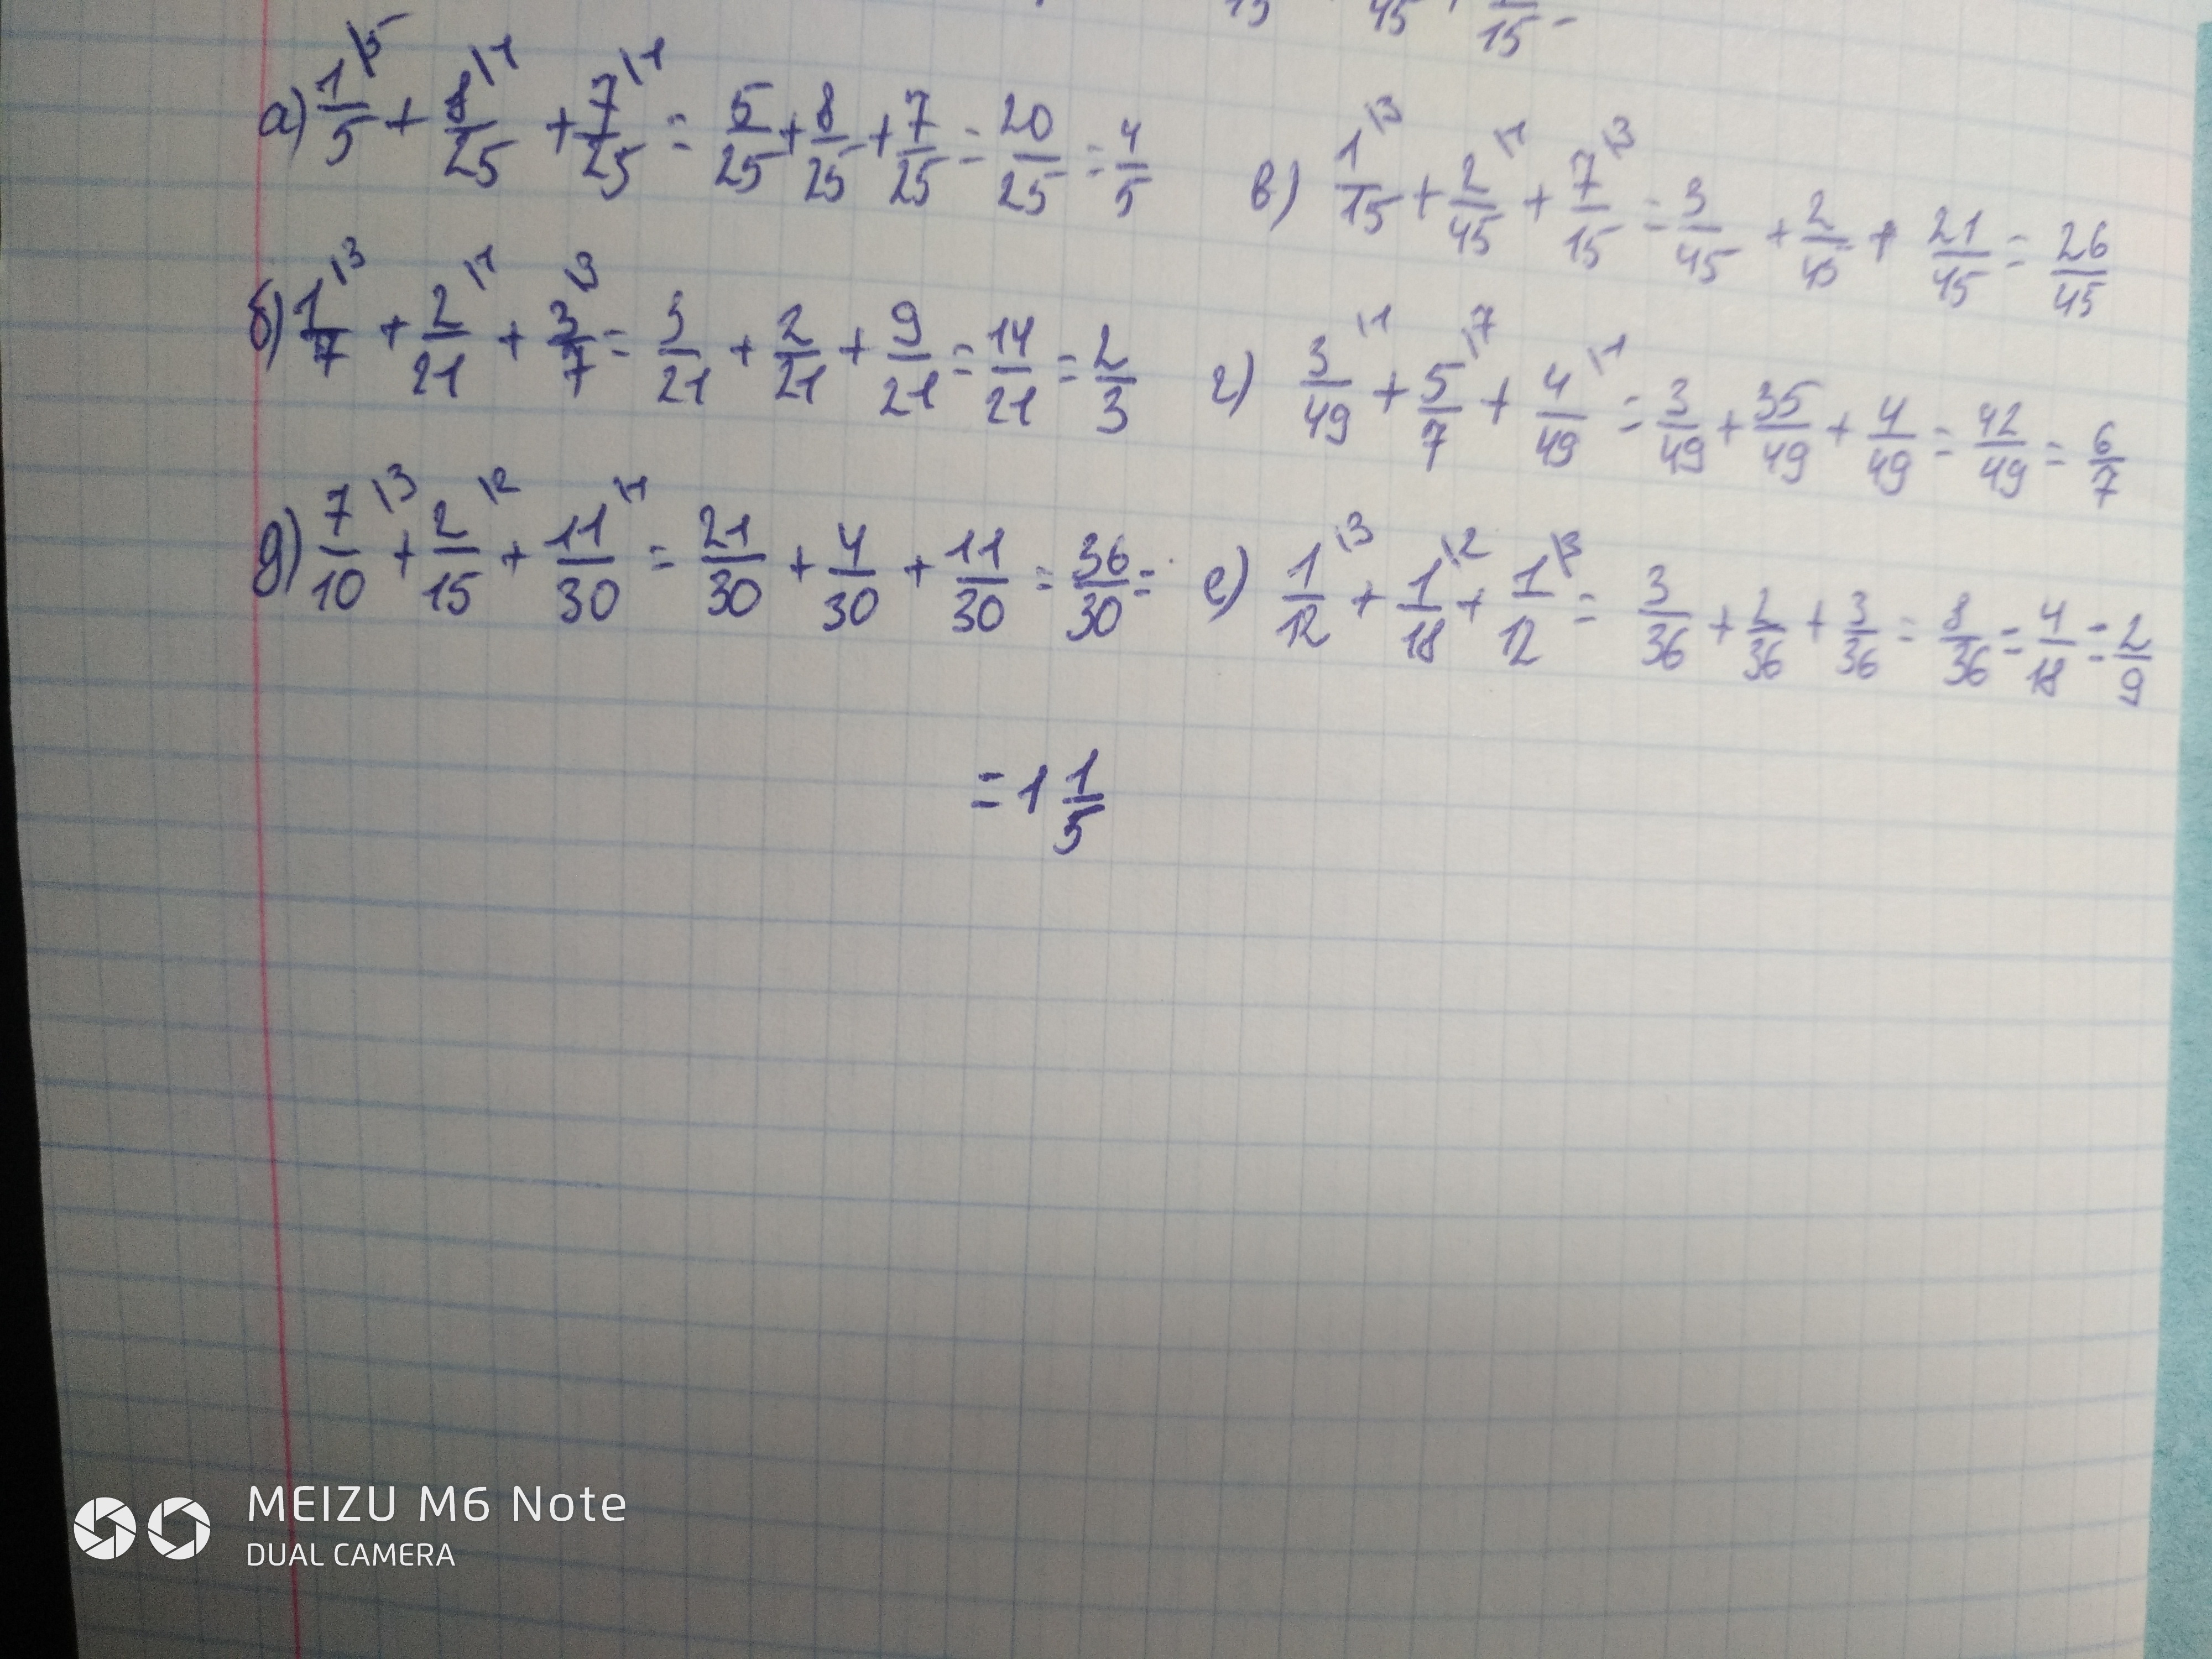 15 45 15 =
а) 1/5 \5 + 8/25 \1 + 7/25 \1 = 5/25 + 8/25 + 7/25 = 20/25 = 4/5
в) 1/15 \3 + 2/45 \1 + 7/15 \3 = 3/45 + 2/45 + 21/45 = 26/45
б) 1/7 \3 + 2/21 \1 + 3/7 \3 = 3/21 + 2/21 + 9/21 = 14/21 = 2/3
г) 3/49 \1 + 5/7 \7 + 4/49 \1 = 3/49 + 35/49 + 4/49 = 42/49 = 6/7
д) 7/10 \3 + 2/15 \2 + 11/30 \1 = 21/30 + 4/30 + 11/30 = 36/30 =
= 1 1/5
е) 1/12 \3 + 1/18 \2 + 1/12 \3 = 3/36 + 2/36 + 3/36 = 8/36 = 4/18 = 2/9
MEIZU M6 Note
DUAL CAMERA